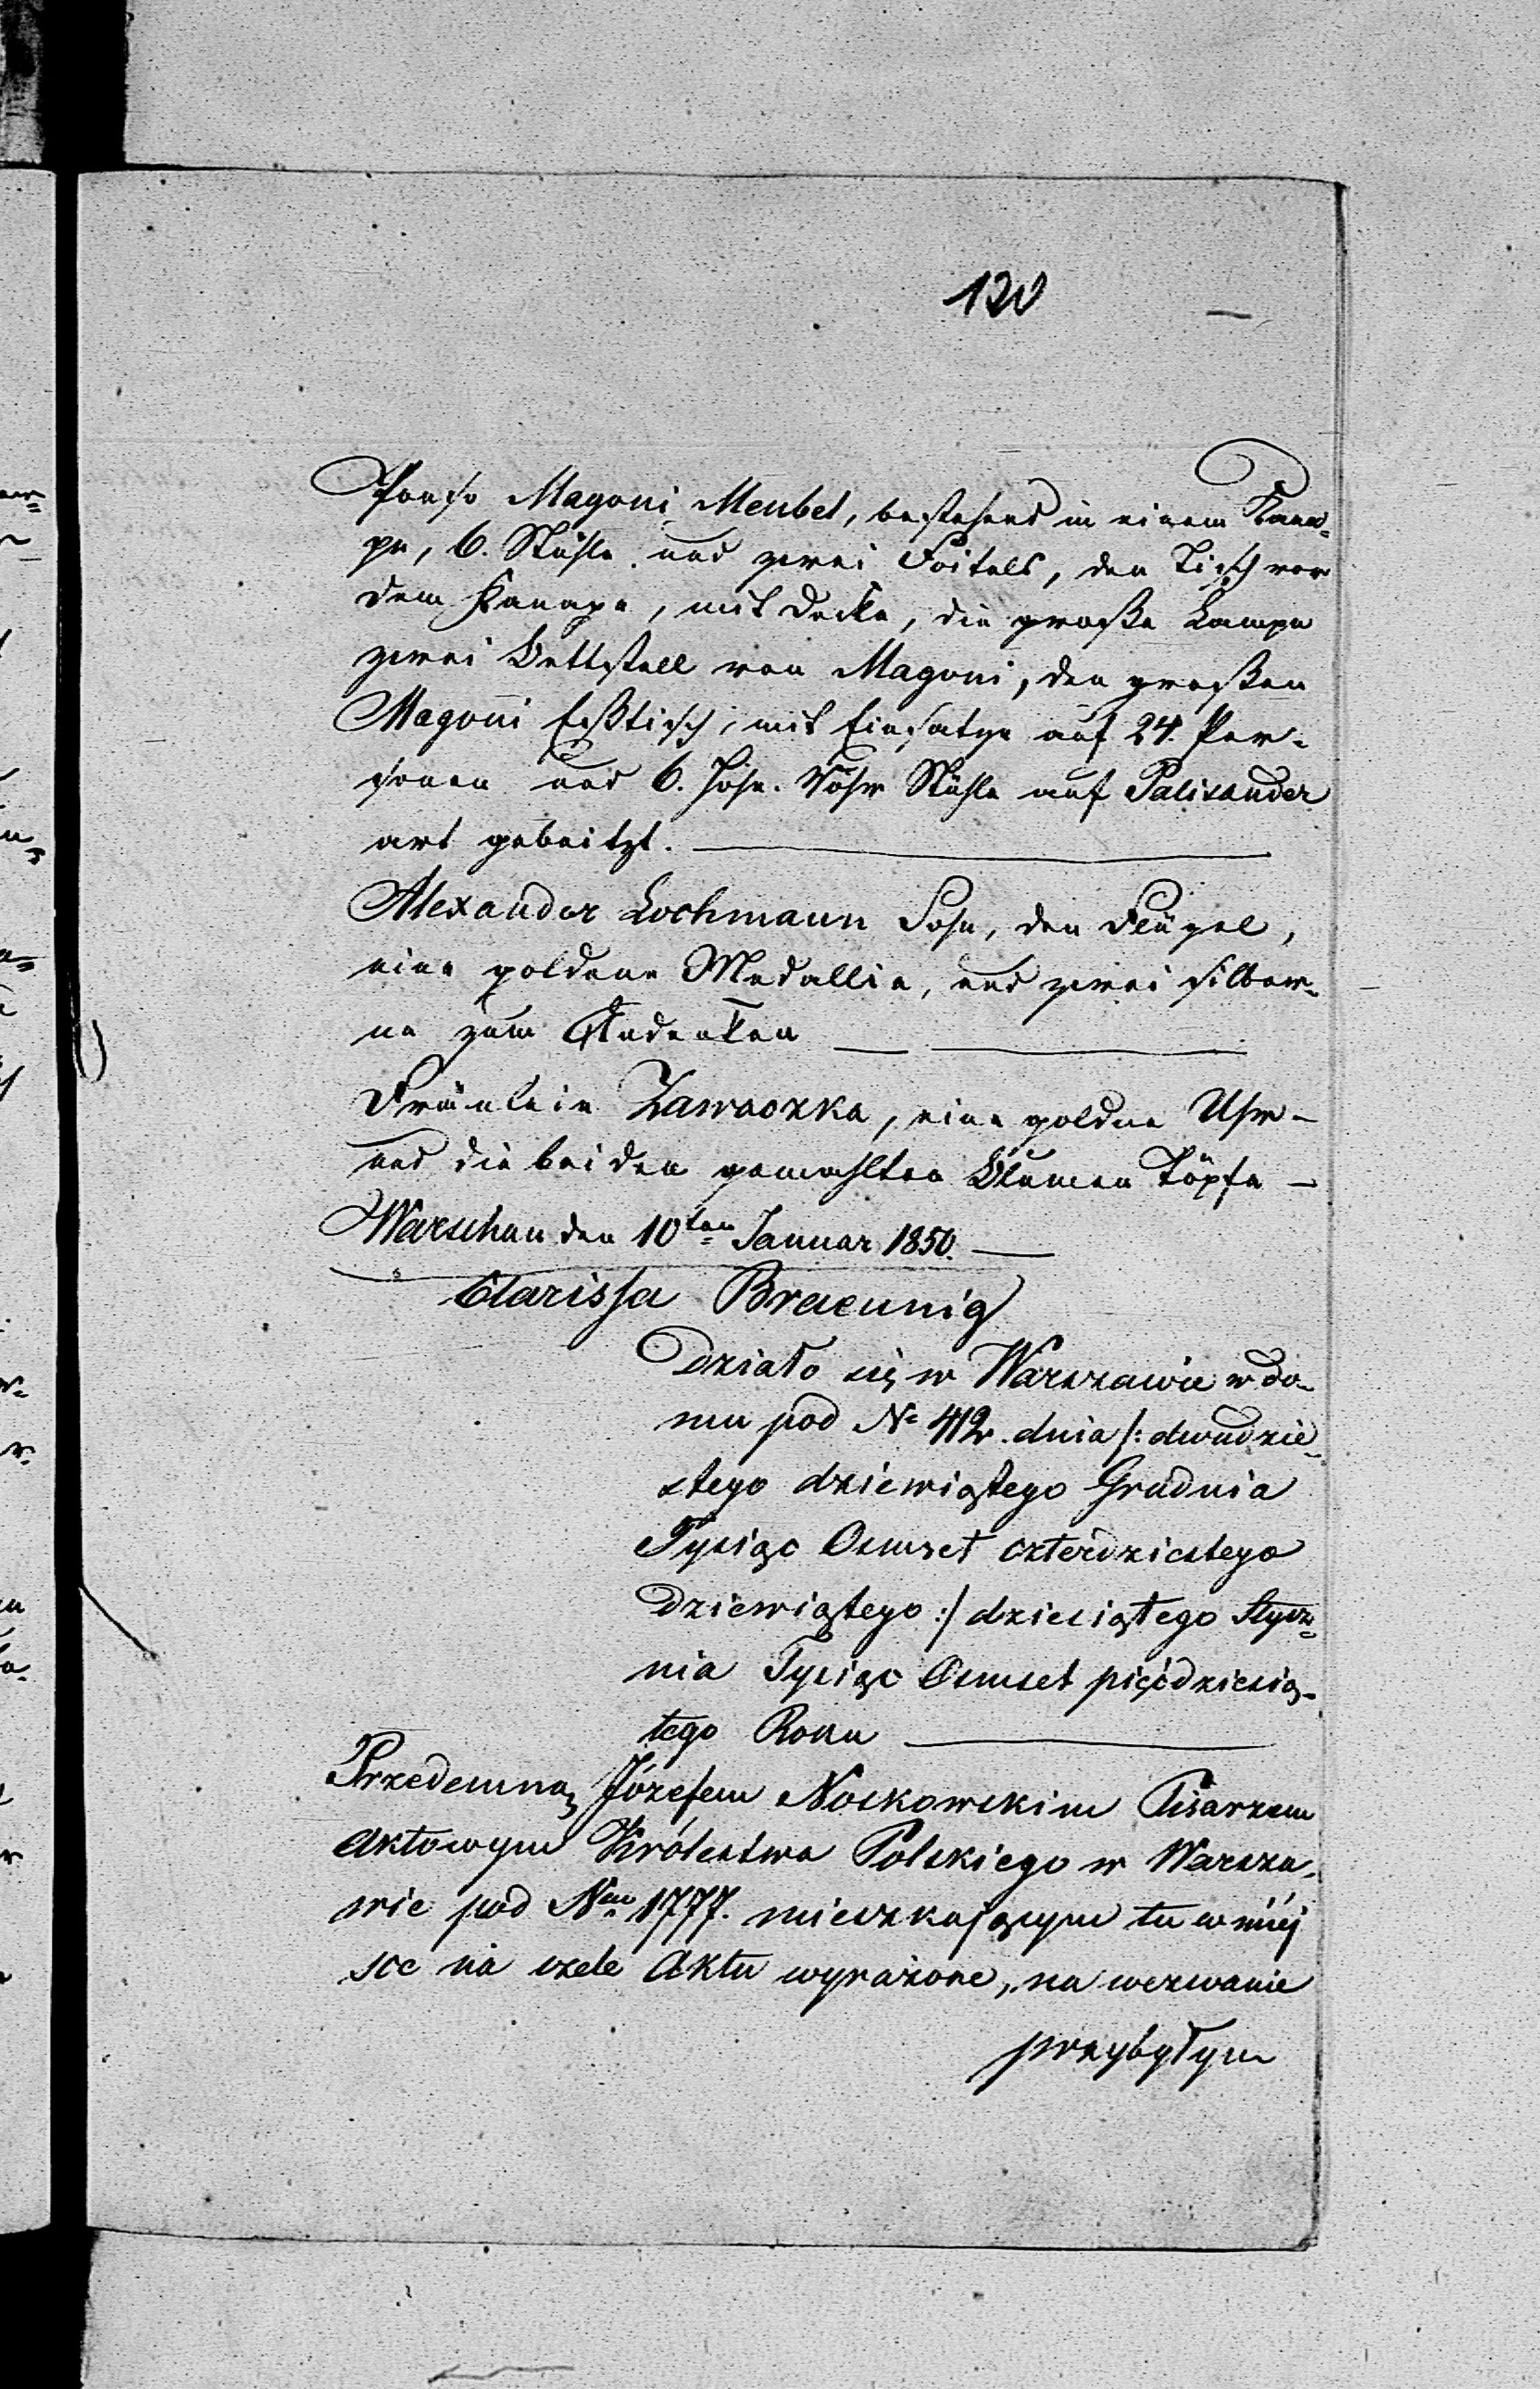 120
Ponso Magoni Meubel, bestehend in einem Kana-
pe, 6. Stühle und zwei Foitels, den Tisch vor
dem Kanape, mit Decke, die große Lampe
zwei Bettstell von Magoni, den großen
Magoni Eßtisch, mit Einsatze auf 24. Per-
sonen und 6. Rohr Stühle auf Palisander
art gebeitzt.
Alexander Lochmann Sohn, den Flügel,
eine goldene Medallie, und zwei silber-
ne zum Andenken
Fräulein Zawaozka, eine goldne Uhr -
und die beiden gemahlten Blumen Töpfe -
Warschau den 10ten Januar 1850.
Clarissa Braeunig
Działo się w Warszawie w do-
mu pod No 412. dnia /: dwudzie-
stego dziewiątego Grudnia
Tysiąc Osmset czterdziestego
dziewiątego :/ dziesiątego Stycz=
nia Tysiąc Osmset pięćdziesią-
tego Roku
Przedemną Józefem Noskowskim Pisarzem
Aktowym Królestwa Polskiego w Warsza-
wie pod Nem 1777. mieszkającym tu w miej
sce na czele Aktu wyrażone, na wezwanie
przybyłym